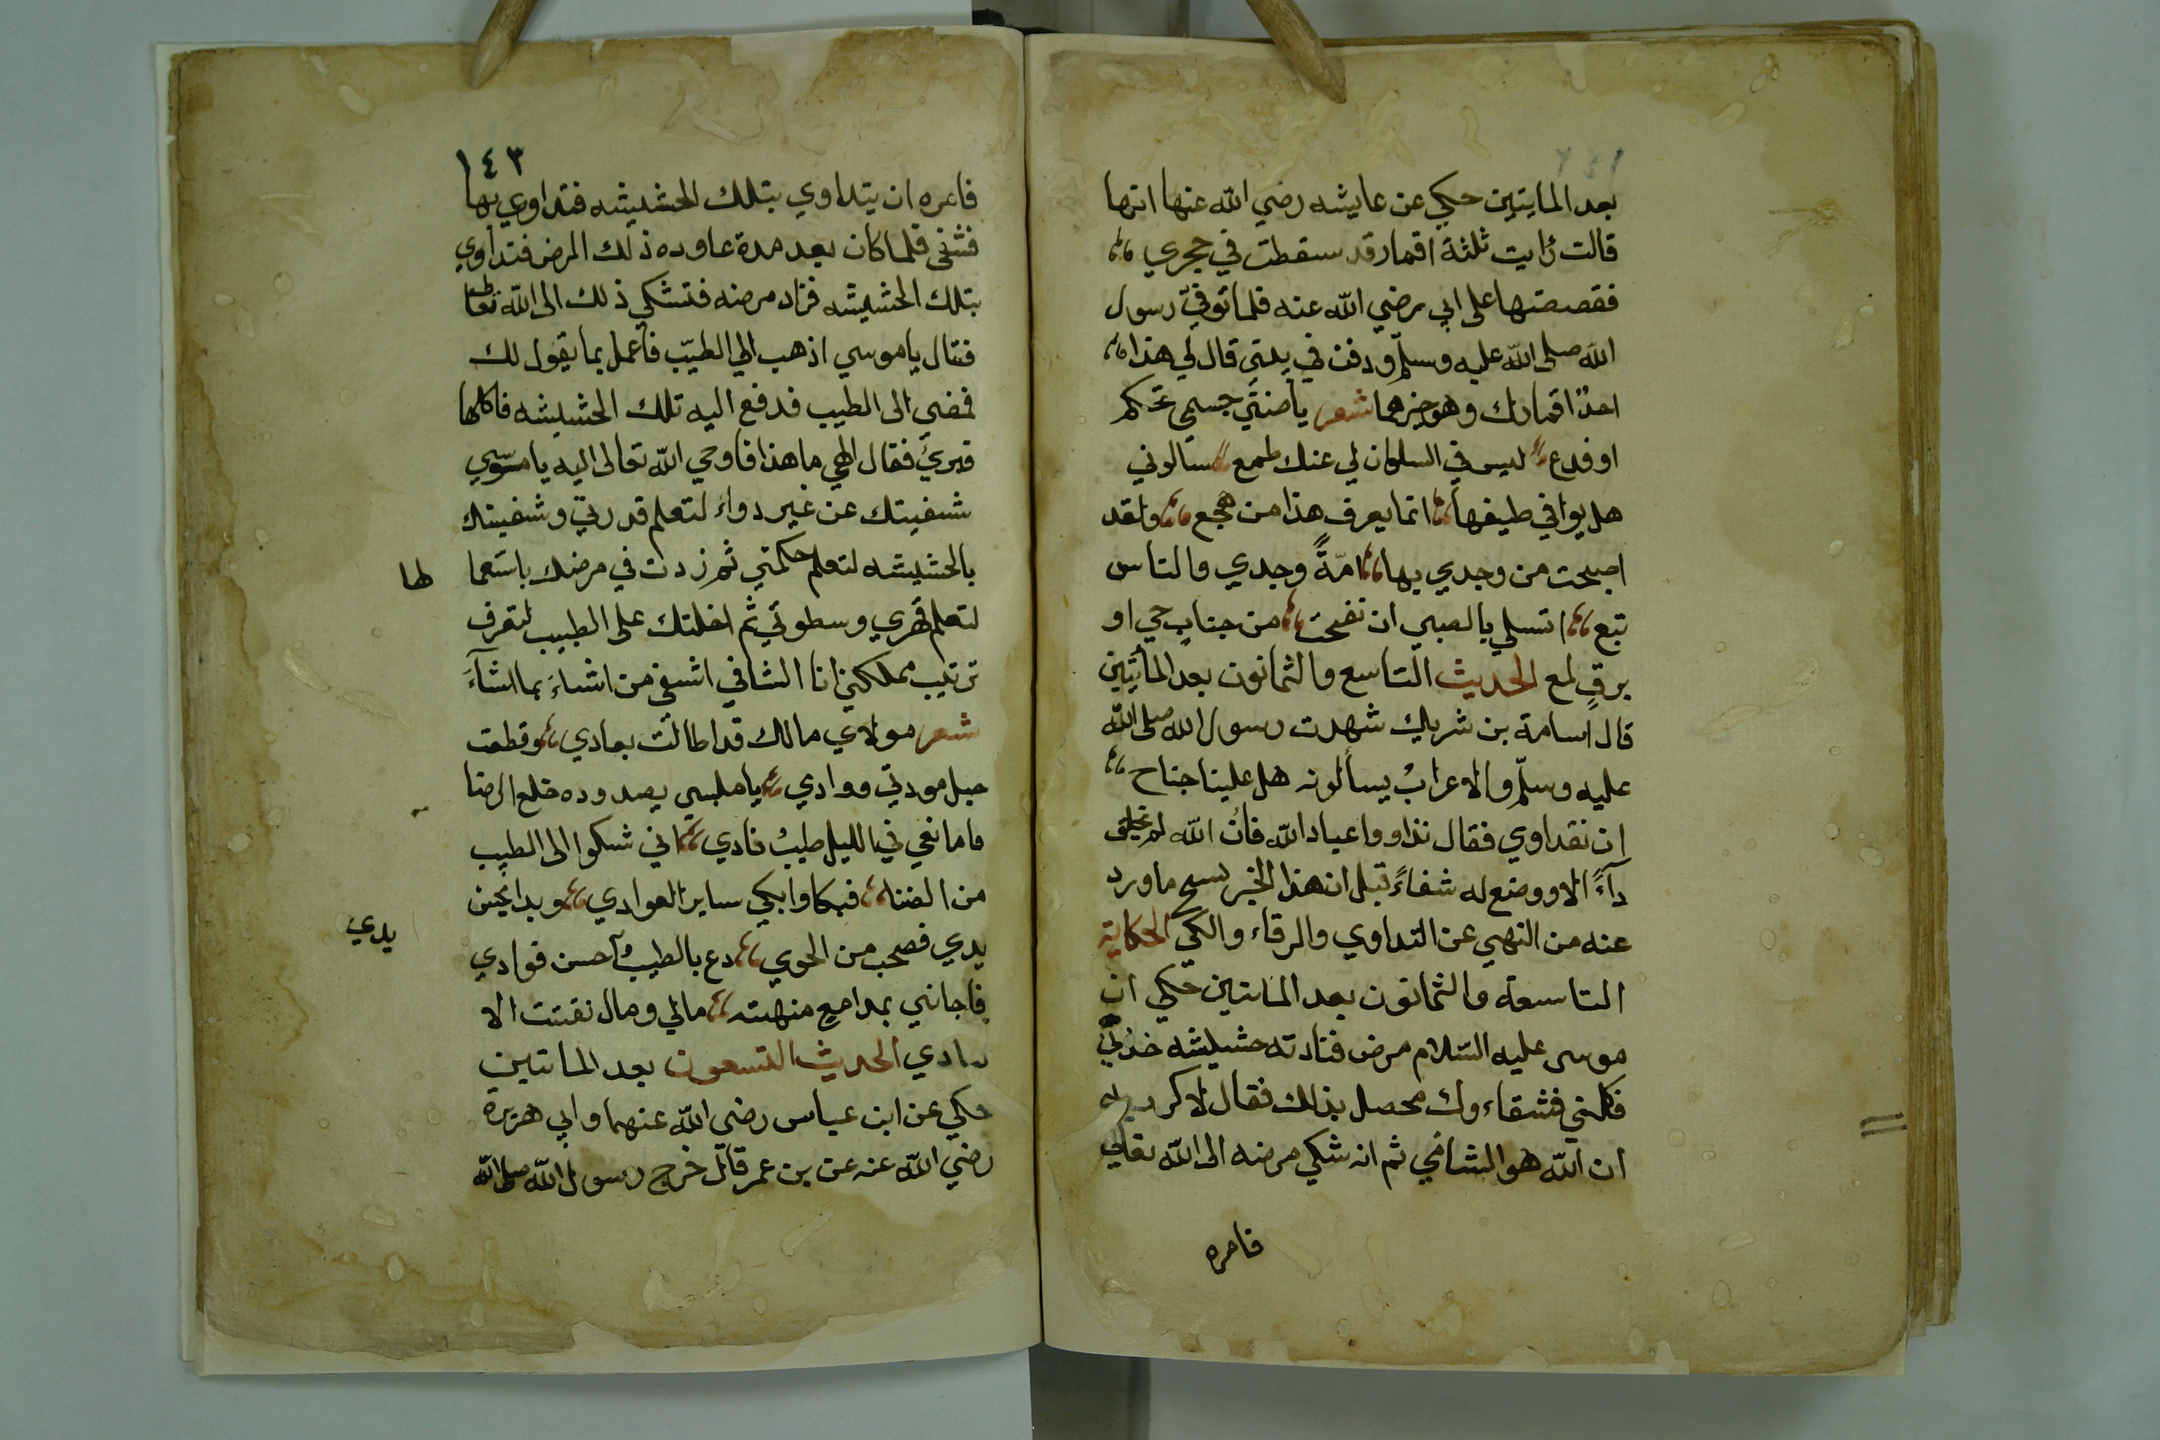 بعد المايتين حكي عن عايشه رضي الله عنها انها
قالت رايت ثلثة اقمار قد سقطت في حجري
فقصصتها على ابي رضي الله عنه فلما توفيّ رسول
الله صلى الله عليه وسلّم ودفن في بيتي قال لي هذا
احدُ اقمارك وهو خيرهما شعر يا ضنتي جسمي
او فدع ليس في السلوان لي عنك طمع سالوني
هل يوافي طيفها انما يعرف هذا من هجع ولقد
اصبحت من وجدي بها امّةً وجدي والناس
تبع اتسلي بالصبي ان نفحت من جناب حي او
برقٍ لمع الحديث التاسع والثمانون بعد المأتيين
قال اسامة بن شريك شهدت رسول الله صلى الله
عليه وسلّم والاعرابُ يسألونه هل علينا جناح
ان نتداوي فقال تداووا عباد الله فان الله لم يخلق
دآءً الا ووضع له شفاءً قيل ان هذا الخبر نسخ ما ورد
عنه من النهي عن التداوي والرقاء والكي الحكاية
التاسعة والثمانون بعد الماتين حكي ان
موسى عليه السّلام مرض فنادته حشيشه خذني
فكلني فشفاءوك محصل بذلك فقال لا
ان الله هو الشافي ثم انه شكي مرضه الى الله تعالي
فامره
١٤٣
فامره ان يتداوي بتلك الحشيشه فتداوي بها
فشفي فلما كان بعد مدة عاوده ذلك المرض فتداوي
بتلك الحشيشه فزاد مرضه فتشكي ذلك الى الله تعالى
فقال يا موسي اذهب الي الطبيّب فأعمل بما يقول لك
فمضى الى الطبيب فدفع اليه تلك الحشيشه فاكلها
فبريَ فقال الهي ما هذا فاوحي الله تعالى اليه يا موسي
شفيتك عن غير دواء لتعلم قدرتي وشفيتك
بالحشيشه لتعلم حكمتي ثم زدت في مرضك باستعما
لها
لتعلم قهري وسطوتي ثم احلتك على الطبيب لتعرف
ترتيب مملكتي انا الشافي اشفي من اشاءَ بما اشآءَ
شعر مولاي مالك قد اطالت بعادي وقطعت
حبل مودتي وودادي يا ملبسي بصدوده خلع الرضا
ما نغي في الليل طيبُ اني شكوا الى الطبيب
من الضنا فبكا وابكي ساير العوادي وبدا يجس
يدي
يدي فصحب من الجوي دع بالطبيب
فاجانبي بمدامع منهته مالي ومال
الحديث التسعون بعد الماتتين
حكي عن ابن عباس رضى الله عنهما وابي هريرة
رضي الله عنه عن بن عمر قال خرج رسول الله صلى الله